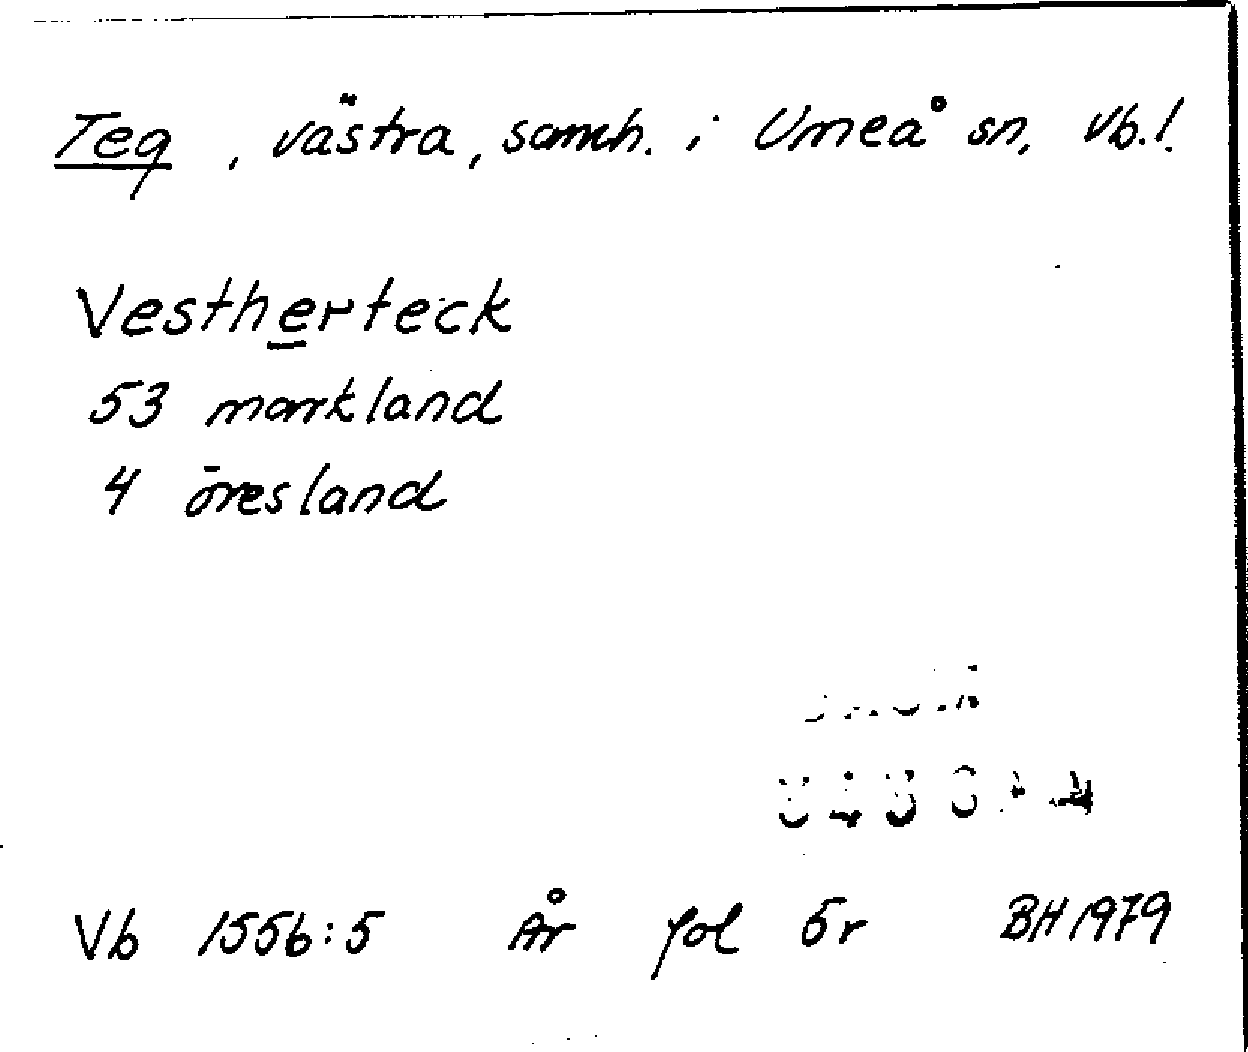 Teg, västra, samh. i Umeå sn, Vb.l.
Vestherteck
53 markland
4 öresland
Vb 1556:5 År fol 5r BH 1979